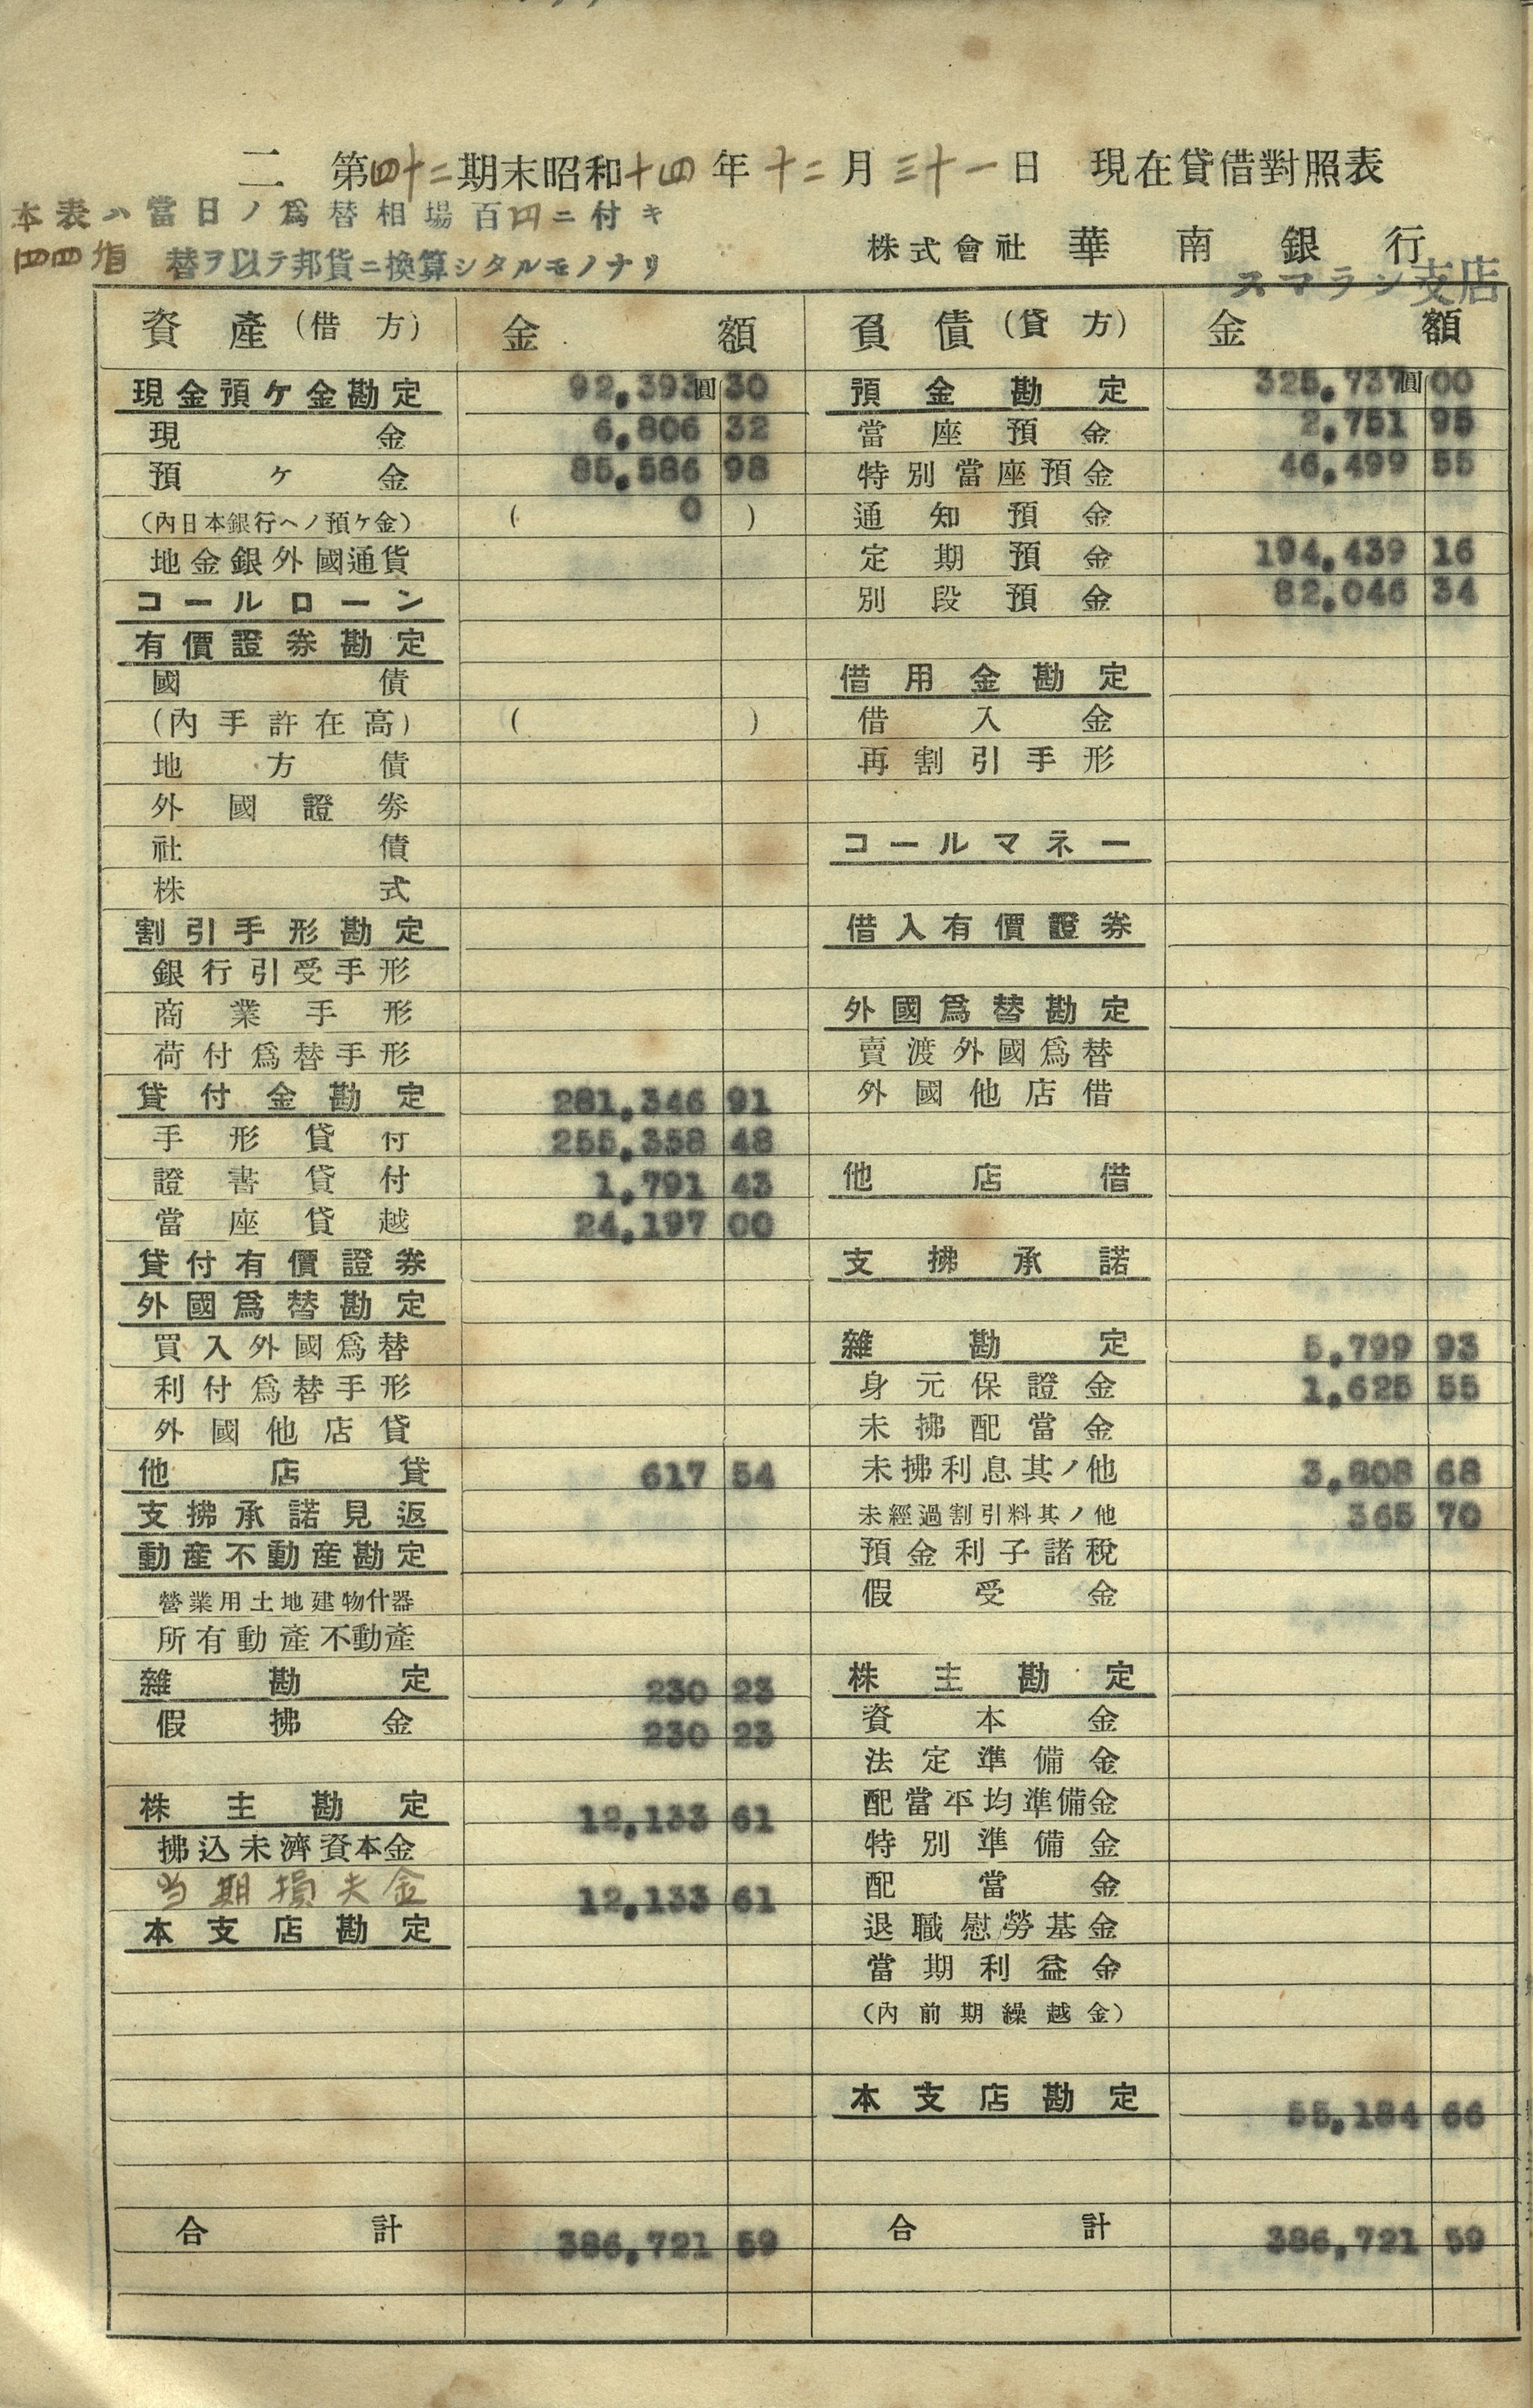 二 第四十二期末昭和十四年十二月三十一日 現在貸借對照表
本表ハ當日ノ爲替相場百四ニ付キ
四四指 替ヲ以テ邦貨ニ換算シタルモノナリ
株式會社 華南銀行
スマラン支店
資產(借方) 金額 負債(貸方) 金額
現金預ケ金勘定 92,393圓30 預金勘定 325,737圓00
現金 6,806 32 當座預金 2,751 95
預ケ金 85,586 98 特別當座預金 46,499 55
(內日本銀行ヘノ預ケ金) ( 0 ) 通知預金
地金銀外國通貨 定期預金 194,439 16
コールローン 別段預金 82,046 34
有價證券勘定
國債 借用金勘定
(內手許在高) ( ) 借入金
地方債 再割引手形
外國證券
社債 コールマネー
株式
割引手形勘定 借入有價證券
銀行引受手形
商業手形 外國爲替勘定
荷付爲替手形 賣渡外國爲替
貸付金勘定 281,346 91 外國他店借
手形貸付 255,358 48
證書貸付 1,791 43 他店借
當座貸越 24,197 00
貸付有價證券 支拂承諾
外國爲替勘定
買入外國爲替 雜勘定 5,799 93
利付爲替手形 身元保證金 1,625 55
外國他店貸 未拂配當金
他店貸 617 54 未拂利息其ノ他 3,808 68
支拂承諾見返 未經過割引料其ノ他 365 70
動產不動產勘定 預金利子諸稅
營業用土地建物什器 假受金
所有動產不動產
雜勘定 230 23 株主勘定
假拂金 230 23 資本金
法定準備金
株主勘定 12,133 61 配當平均準備金
拂込未濟資本金 特別準備金
当期損失金 12,133 61 配當金
本支店勘定 退職慰勞基金
當期利益金
(內前期繰越金)
本支店勘定 55,184 66
合計 386,721 59 合計 386,721 59